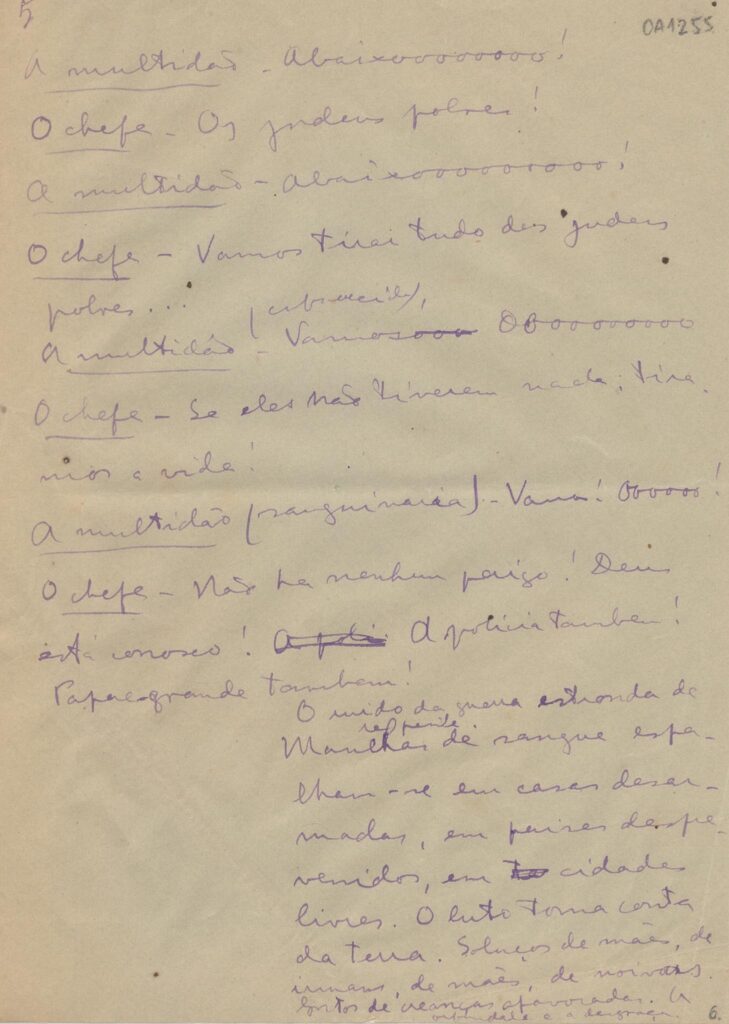 5
OA1255
A multidão - Abaixooooooooo!
O chefe - Os judeus pobres!
A multidão - Abaixoooooooooo!
O chefe - Vamos tirar tudo dos judeus
pobres...
A multidão - Vamosooo Oooooooooo
O chefe - Se eles não tiverem nada, tira-
mos a vida!
A multidão (sanguinaria) - Vamos! Oooooo!
O chefe - Não ha nenhum perigo! Deus
está conosco! A poli A policia tambem!
Papae-grande tambem!
O ruido da guerra estronda de
repente.
Manchas de sangue espa-
lham-se em casas desar-
madas, em paises despre-
venidos, em cidades
livres. O luto toma conta
da terra. Soluços de mães, de
irmans, de mães, de noivas.
Gritos de creanças apavoradas. A
orfandade e a desgraça.
6.